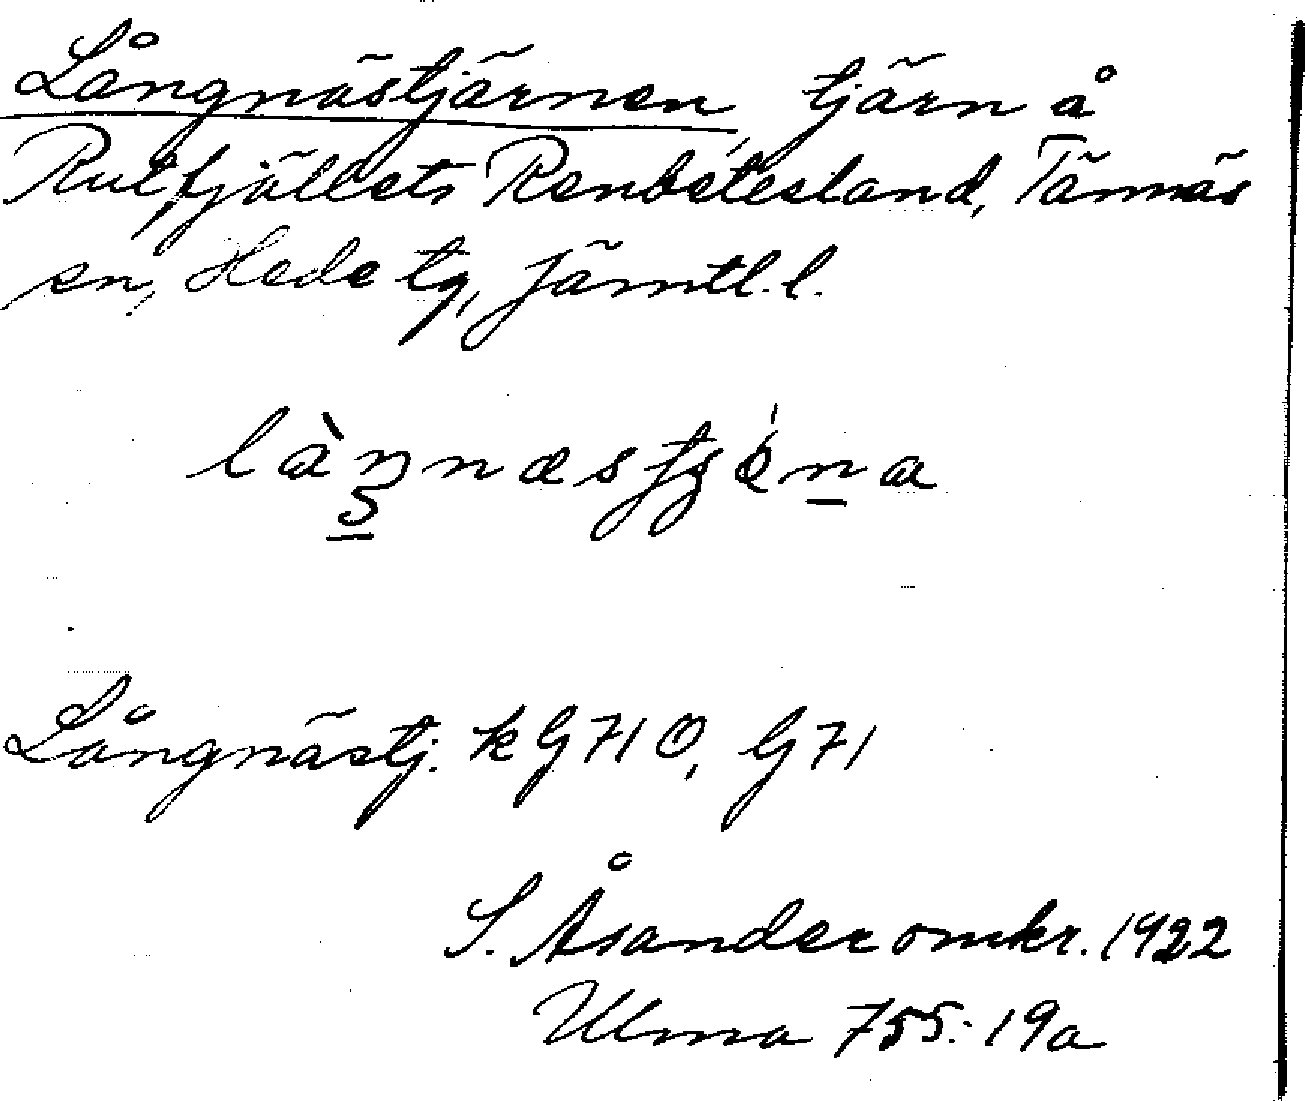 Långnästjärnen, tjärn å
Rutfjällets Renbetesland, Tännäs
sn, Hede tg, Jämtl. l.
Långnästj. k G 71 O, G 71
S. Åsander omkr. 1922
Ulma 755:19a